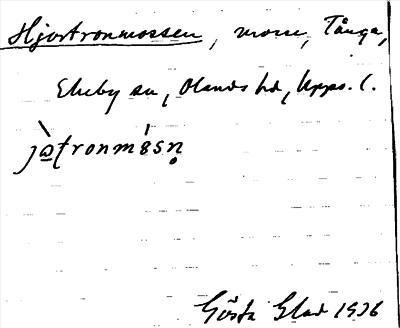 Hjortronmossen, mosse, Tånga,
Ekeby sn, Olands hd, Upps. l.
jòtronmósn̥
Gösta Glad 1936